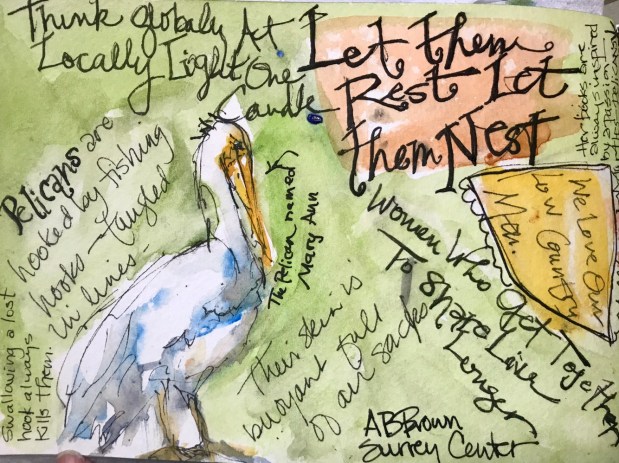 Think globaly At
Locally Light One
Candle
Let them
Rest Let
them Nest
Her books are
always inspired
by a passion
Pelicans are
hooked by fishing
hooks - tangled
in lines -
Swallowing a lost
hook always
kills them.
The Pelican named
Mary Ann
Their skin is
buoyant full
of air sacks
We Love Our
Low Country
Men.
Women Who Get Together
To Share Live
Longer
AB Brown
Surrey Center